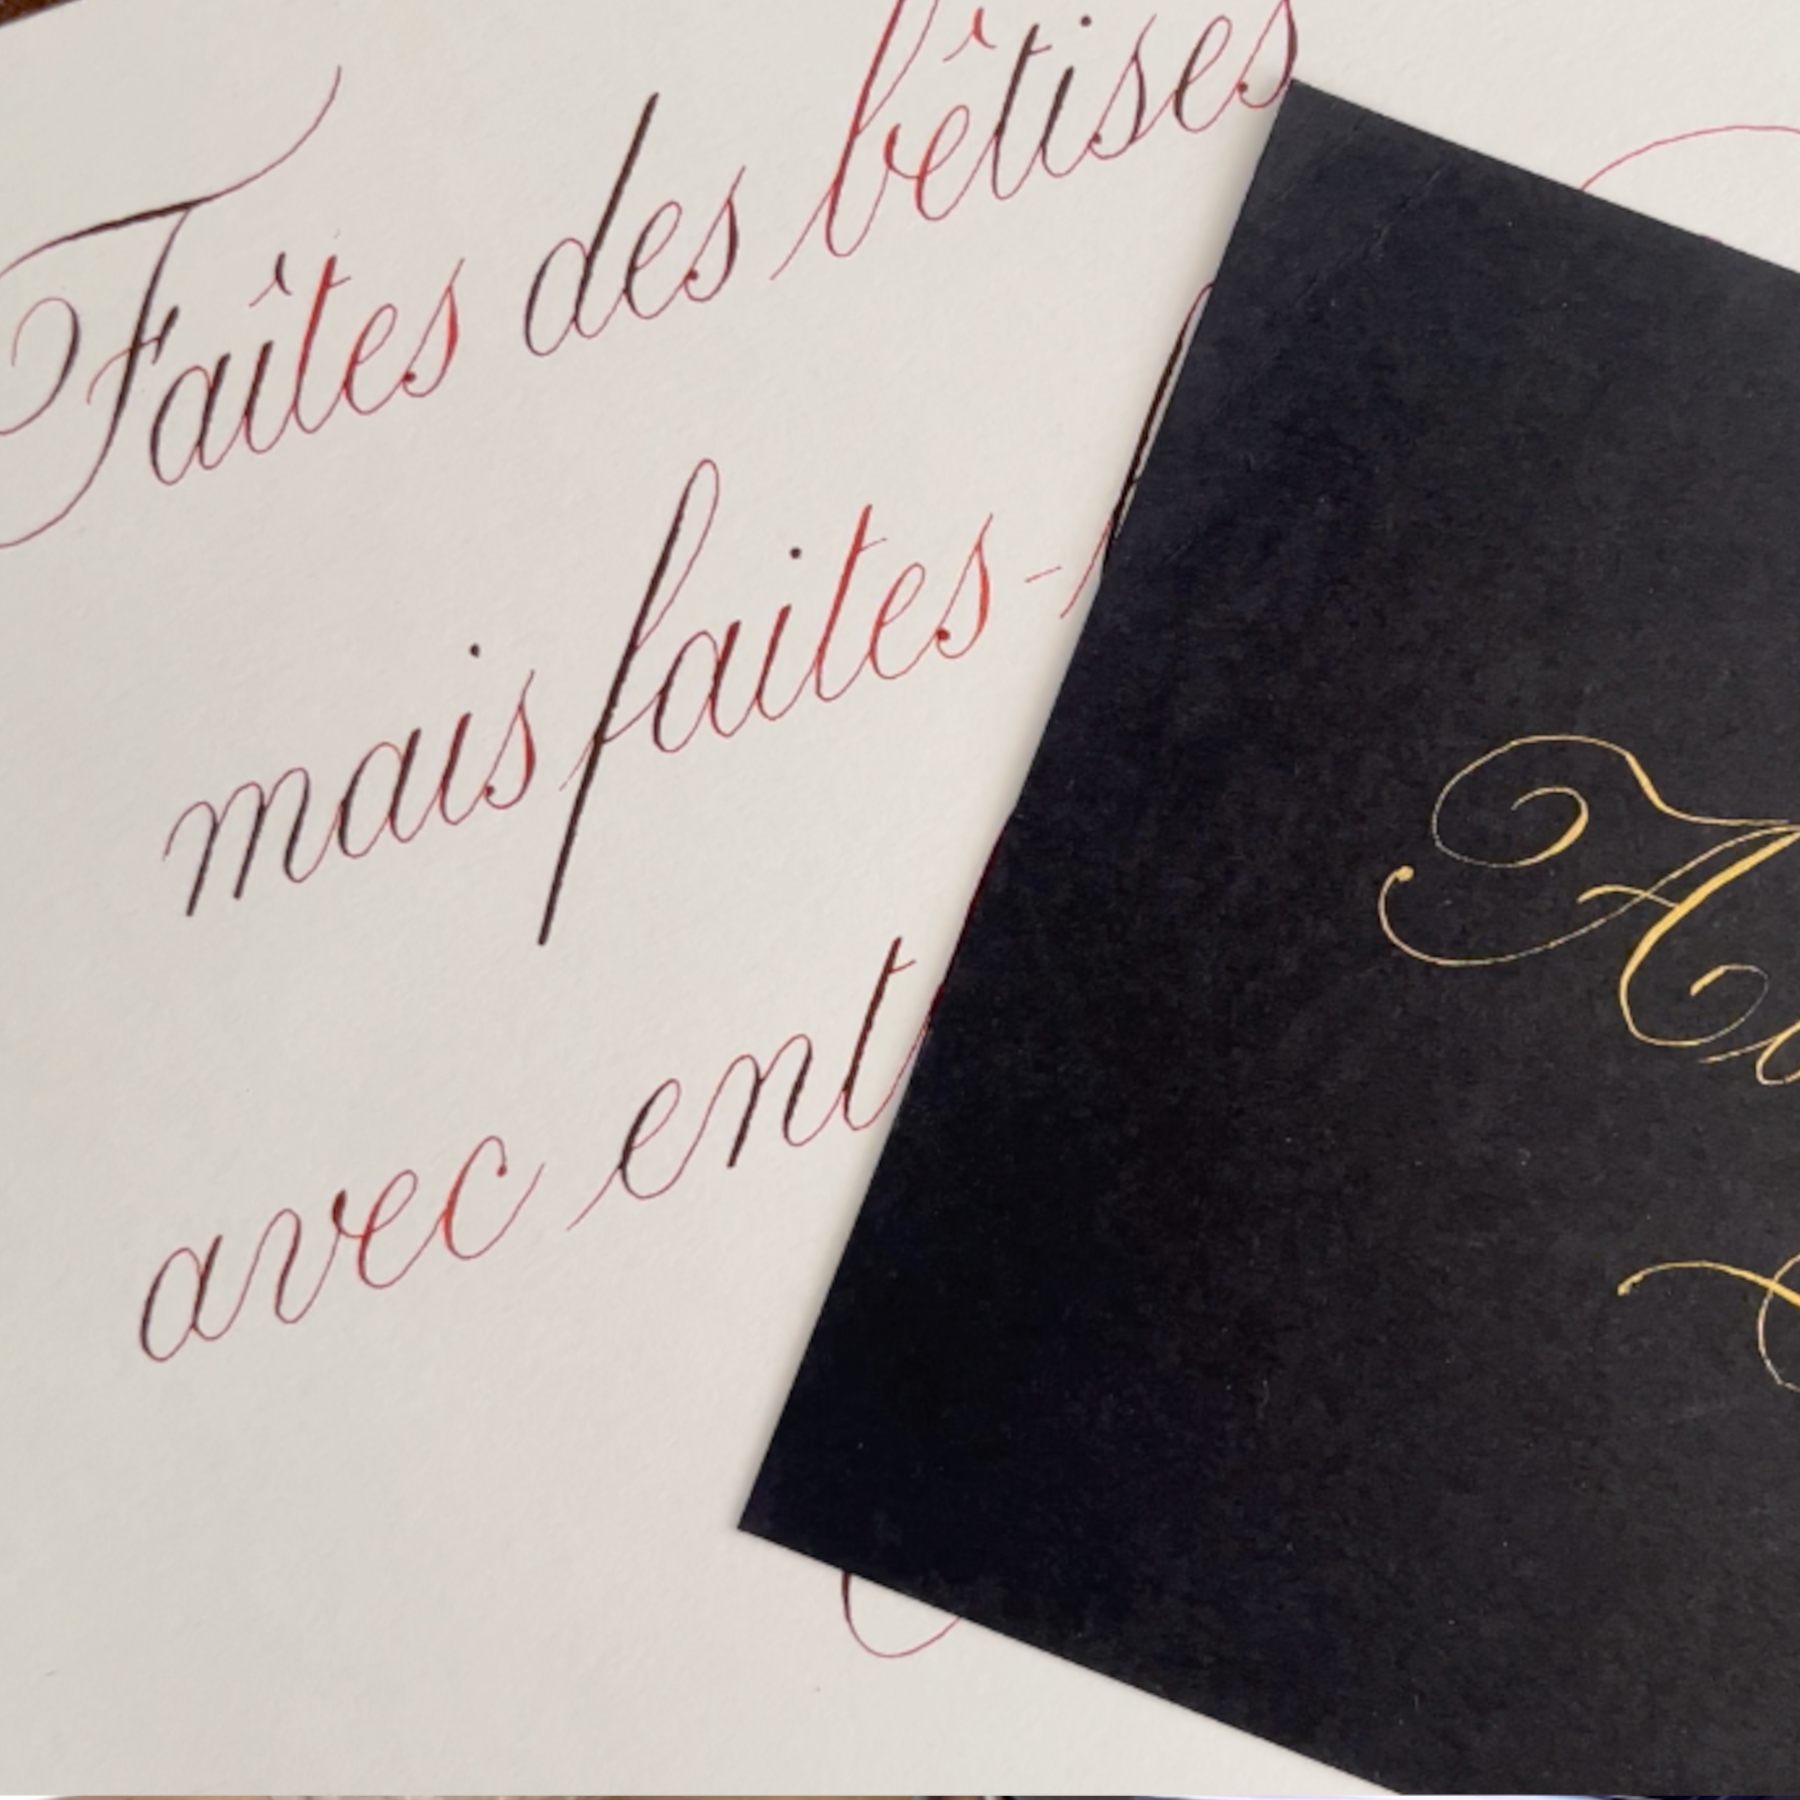 Faîtes des bêtises
mais faites-
avec